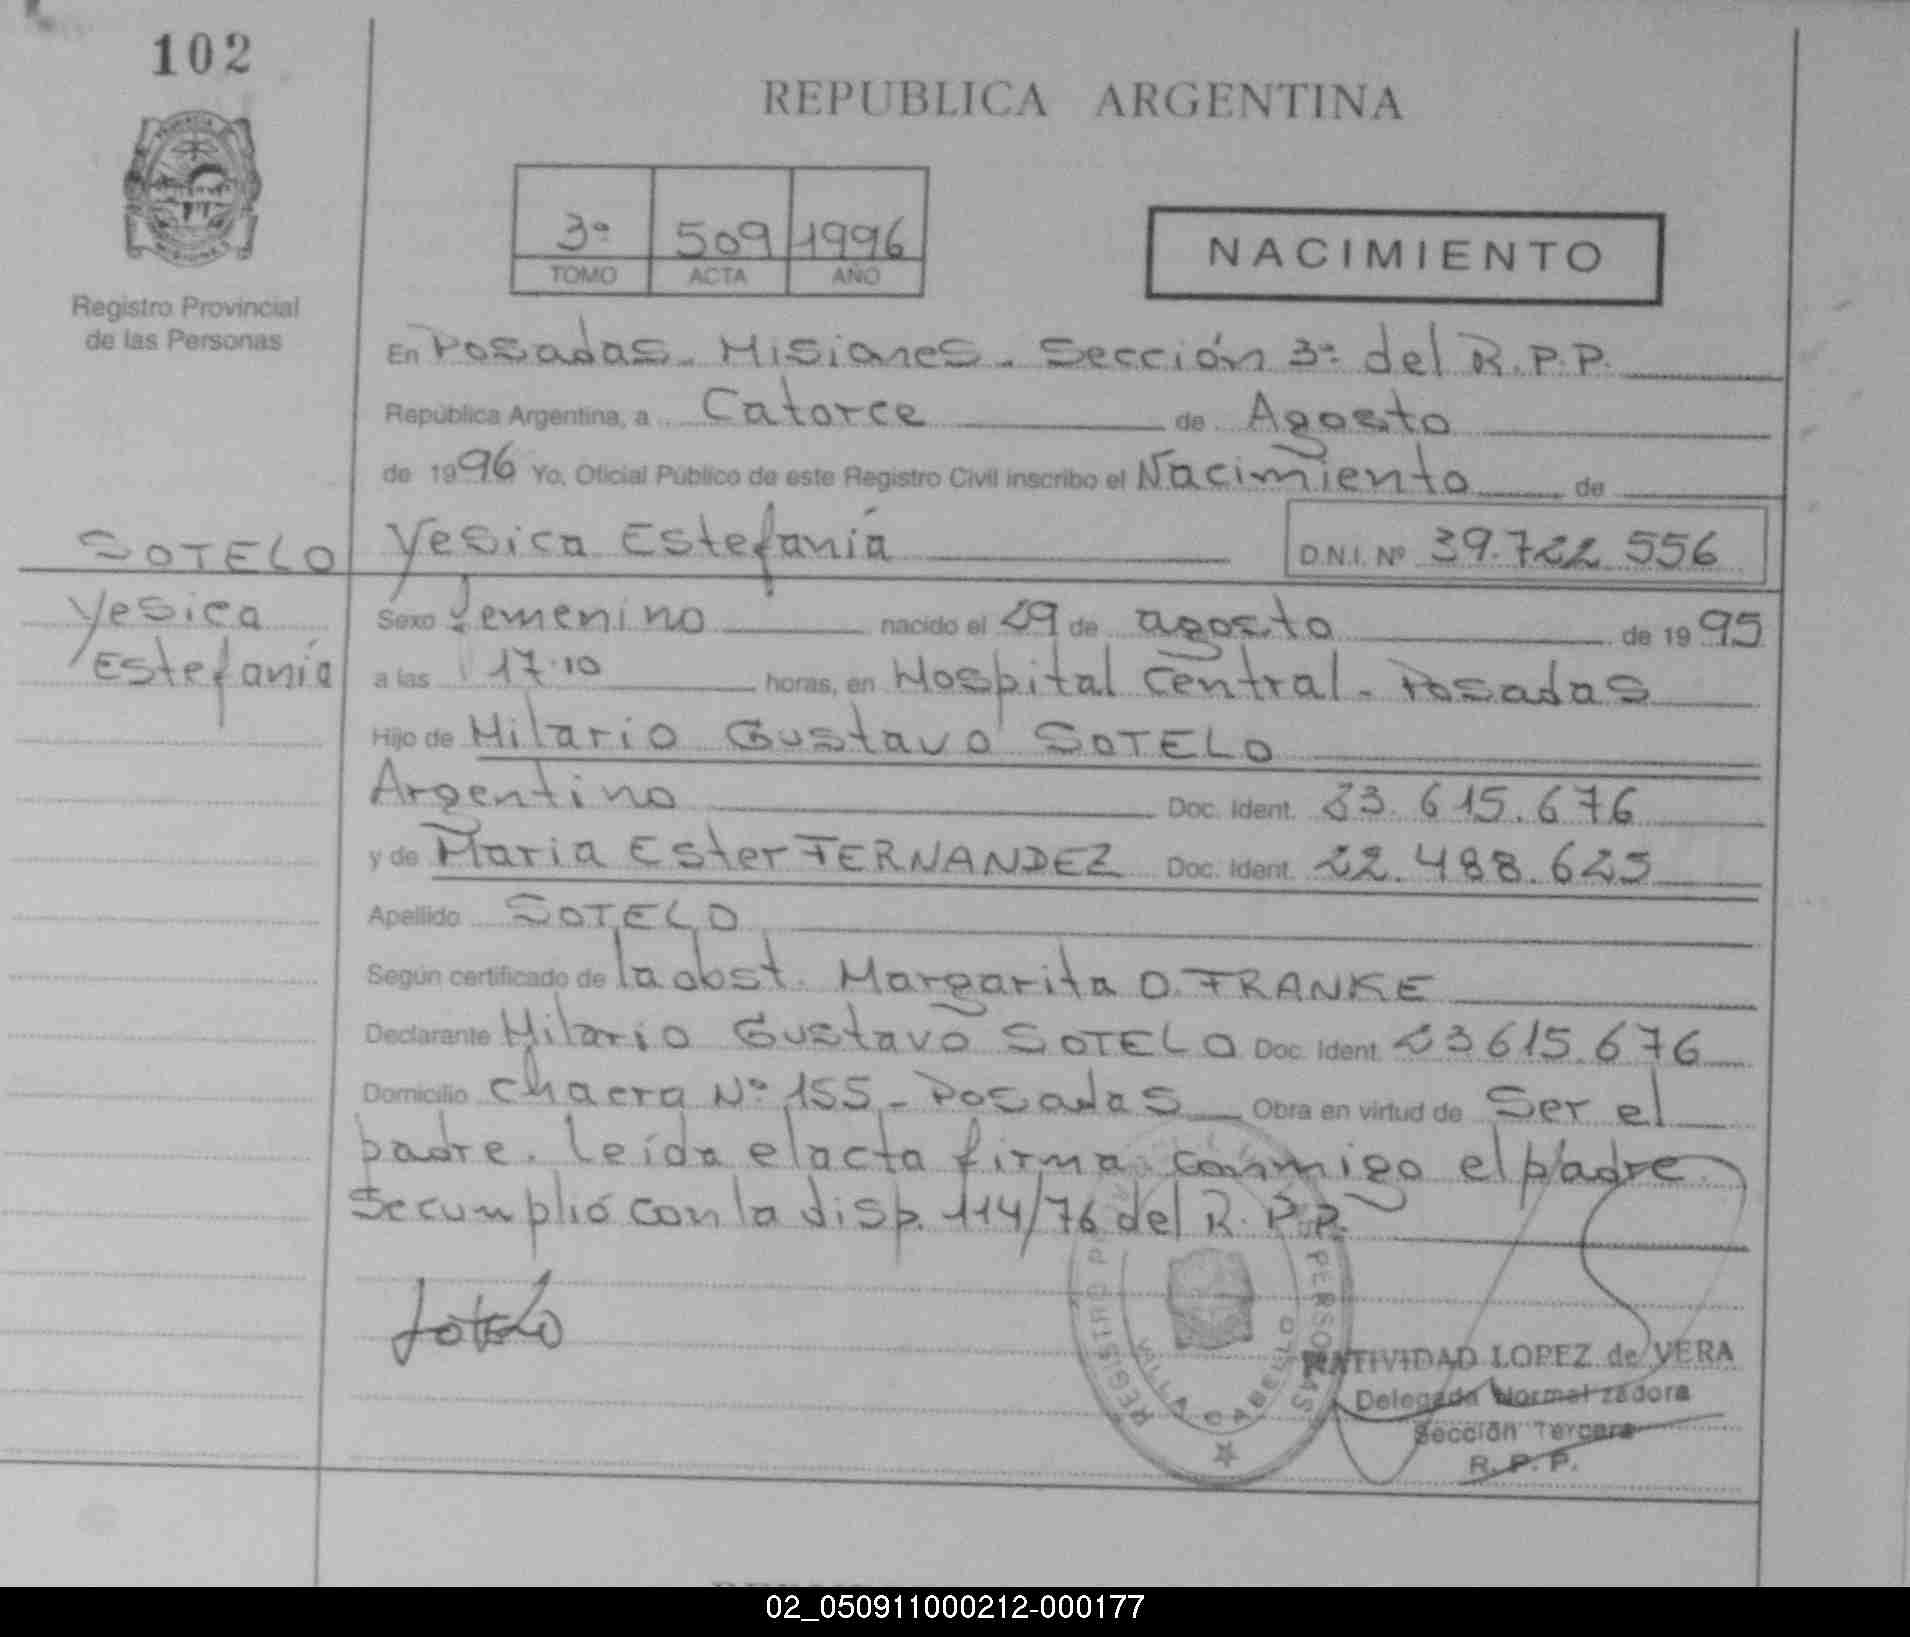 102
REPUBLICA ARGENTINA
3º 509 1996
TOMO ACTA AÑO
NACIMIENTO
Registro Provincial
de las Personas
En Posadas - Misiones - Sección 3ª del R.P.P.
República Argentina, a Catorce de Agosto
de 1996 Yo, Oficial Público de este Registro Civil inscribo el Nacimiento de
SOTELO Yesica Estefanía D.N.I. Nº 39.722 556
Yesica
Estefanía
Sexo femenino nacido el 29 de agosto de 1995
a las 17.10 horas, en Hospital Central - Posadas
Hijo de Hilario Gustavo SOTELO
Argentino Doc. Ident. 23.615.676
y de Maria Ester FERNANDEZ Doc. Ident. 22.488.625
Apellido SOTELO
Según certificado de la obst. Margarita O. FRANKE
Declarante Hilario Gustavo SOTELO Doc. Ident. 23615.676
Domicilio Chacra Nº 155 - Posadas Obra en virtud de Ser el
padre. Leída el acta firma conmigo el padre.
Se cumplió con la disp. 114/76 del R.P.P.
Sotelo
REGISTRO PERSONAS
VILLA CABELLO
NATIVIDAD LOPEZ de VERA
Delegada Normalizadora
Sección Tercera
R. P. P.
02_050911000212-000177